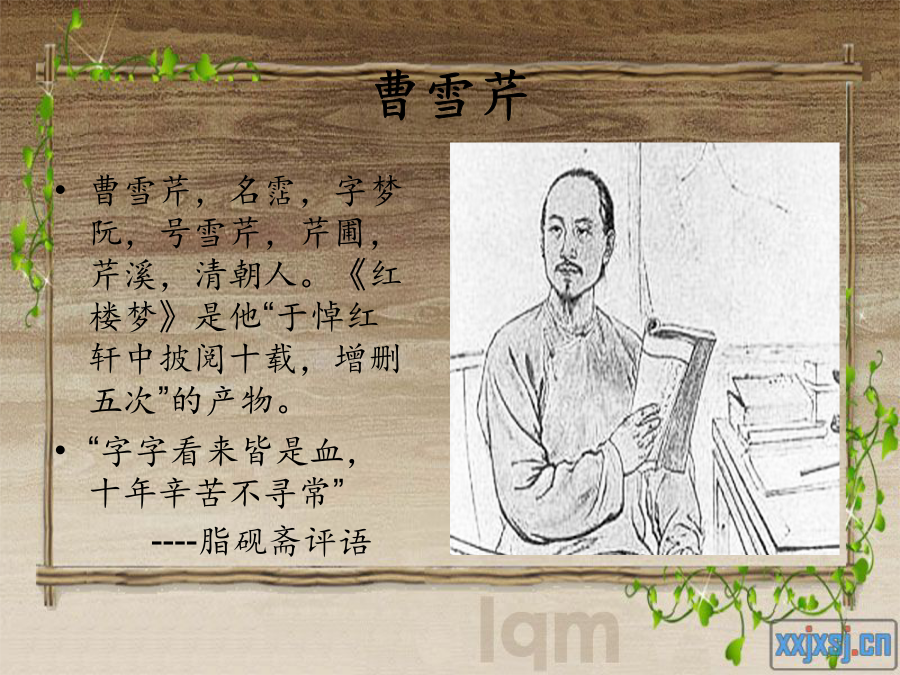 曹雪芹
• 曹雪芹，名霑，字梦
阮，号雪芹，芹圃，
芹溪，清朝人。《红
楼梦》是他“于悼红
轩中披阅十载，增删
五次”的产物。
• “字字看来皆是血，
十年辛苦不寻常”
----脂砚斋评语
lqm
xxjxsj.cn